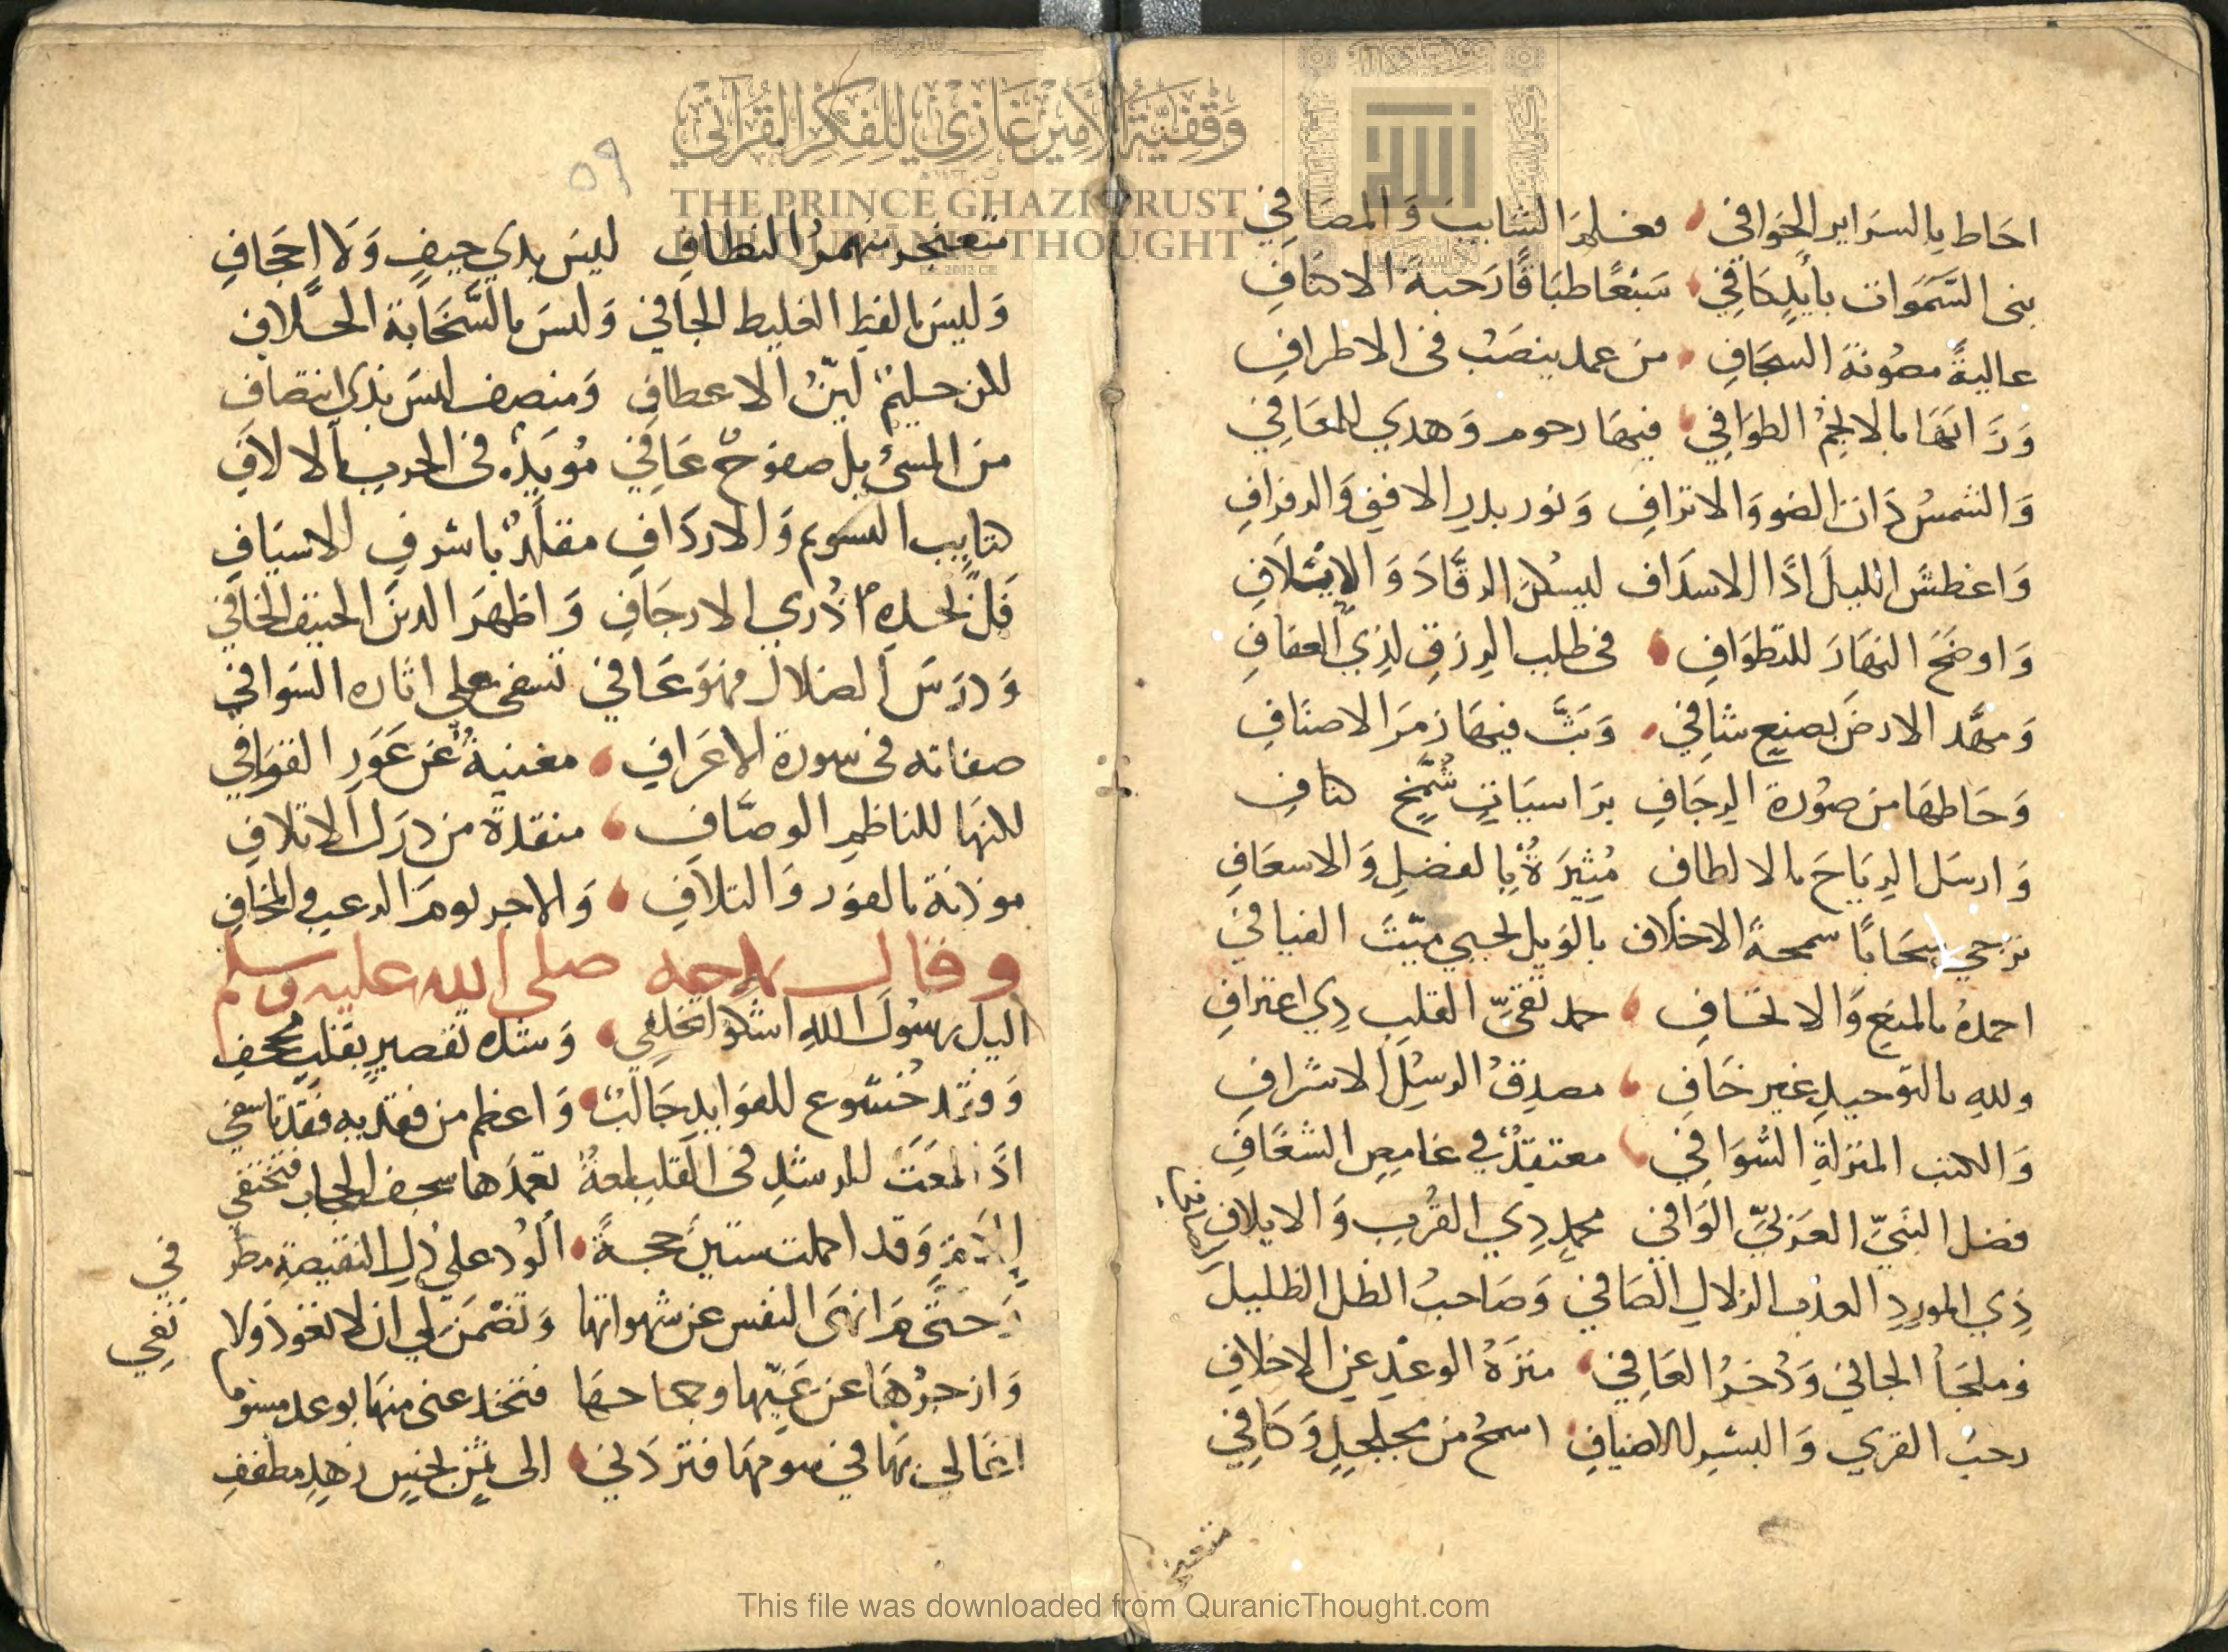 وقفية الأمير غازي للفكر القرآني
THE PRINCE GHAZI TRUST
FOR QUR'ANIC THOUGHT
احاط بالسراير الخوافي والمصافي
بنى السموات بايد كافي سبعا طباقا رحبة الاكناف
عالية مصونة السجاف من عمد ينصب في الاطراف
وزانها بالانجم الطوافي فيها رجوم وهدي للعافي
والشمس ذات الضو والانزاف ونور بدر الافق والرفراف
واغطش الليل اذا الاسداف ليسكن الرقاد والايتلاف
واوضح النهار للتطواف في طلب الرزق لذي العفاف
ومهد الارض بصنع شافي وبث فيها زمر الاصناف
وحاطها من صورة الرجاف براسيات شمخ كناف
وارسل الرياح بالالطاف مثيرة بالفضل والاسعاف
تزجي سحابا سمحة الاخلاف بالوبل لحيي ميت الفيافي
احمده بالمنع والالحاف حمد تقي القلب ذي اعتراف
ولله بالتوحيد غير خاف مصدق الرسل الاشراف
والكتب المنزلة الشوافي معتقد في غامض الشغاف
فضل النبي العربي الوافي محمد ذي القرب والايلاف
ذي المورد العذب الزلال الصافي وصاحب الظل الظليل
وملجأ الجاني وذخر العافي منزه الوعد عن الاخلاف
رحب القري والبشر للاضياف اسمح من مجلجل وكافي
مثعنجر
٥٩
مثعنجر منهمر النطاف ليس بذي حيف ولا اجحاف
وليس بالفظ الغليظ الجافي وليس بالسخابة الحلاف
لكن حليم لين الاعطاف ومنصف ليس بذي انتصاف
من المسئ بل صفوح عافي مويد في الحرب بالالاف
كتايب السوم والارداف مقلد باشرف الاسياف
الارجاف واظهر الدين الحنيف الخافي
ودرس الضلال فهو عافي تسفي علي اثاره السوافي
صفاته في سورة الاعراف مغنية عن عور القوافي
لكنها للناظم الوصاف منقذة من درك الاتلاف
موذنة بالفوز والتلاف والاجر يوم الرعب والمخاف
وقال يمدحه صلى الله عليه وسلم
اليك رسول الله اشكو تخلفي وشدة تقصير بقلب مجحف
وفقد خشوع للفوايد جالب واعظم من فقد به فقد تاسفي
اذا لمعت للرشد في القلب لمعة تعمدها سجف الحجاب فتختفي
وقد اكملت ستين حجة الود علي ذل النقيصة مطرفي
حتى م انهى النفس عن شهواتها وتضمن لي ان لا تعود ولا تفي
وازجرها عن غيها وجماحها فتخدعني منها بوعد مسوف
اغالي بها في سومها فتردني الى ثمن بخس زهيد مطفف
This file was downloaded from QuranicThought.com